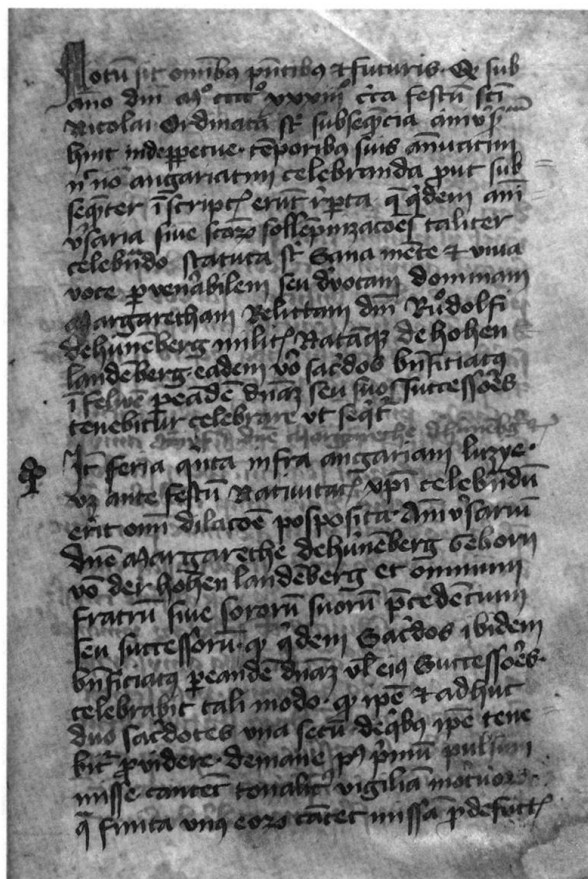 Notū sit omībꝫ pn̄tibꝫ ⁊ futuris · Qꝫ sub
āno dm̄ Mº ccccº xxxiijº cᷓca festū sc̄i
Nicolai · Ordinata sᷓt subseqn̄cia
hinc inde ꝑpetue · tēporibꝫ suis annuatim
n̄ nō angariatim celebranda ꝓut sub
seqn̄ter īscriptꝭ erūt rᷓpta q̄ qͥdem ani
v̓saria sive sollēpnizacōes taliter
celebn̄do statuta sᷓt Sana mēte ⁊ viva
voce ꝑ ven̓abilem seu devotam dominam
Margaretham Relictam dm̄ Ruͦdolfi
de hünēberg militꝭ Natāqꝫ de hohen
landēberg · eadem v̓o sac̓dos bn̄ficiatꝫ
ī ꝑ eandē dn̄aꝫ seu suo successōes
tenebitur celebrare vt seqᷓt
Itē feria qͥnta infra angariam lucye ·
vꝫ ante festū Nativitatꝭ xp̄i celebrn̄dū
erit om̄i dilacōe posposita · Anīv̓sariū
dn̄e Margarethe de hünēberg Gēborn̄
vō der hohen landēberg et omnium
fratrū sive sororū suorū p̄cedēcium
seu successorū · qꝫ qͥdem Sac̓dos ibidem
bn̄ficiatꝫ ꝑ eandē dn̄aꝫ vl̄ eiꝰ Successōes ·
celebrabit tali modo · qꝫ ip̄e ⁊ adhuc
duo sac̓dotes vna secū · de qͥbꝫ ip̄e tene
bitᷓ ꝓvidere · de mane pꝰ pͥmū pulsum
misse cantēt tonalitᷓ vigiliā mōtuoꝝ ·
qᷓ finita vnꝰ eoꝝ cātet missā ꝓ defūctꝭ